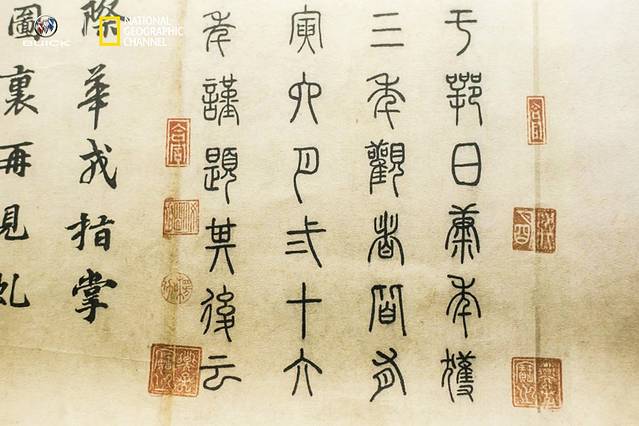 BUICK
NATIONAL
GEOGRAPHIC
CHANNEL
于鄂日兼年獲
三年觀者皆
寅六月弍十六
年謹題其後云
際華戎指掌
圖裏再見虬